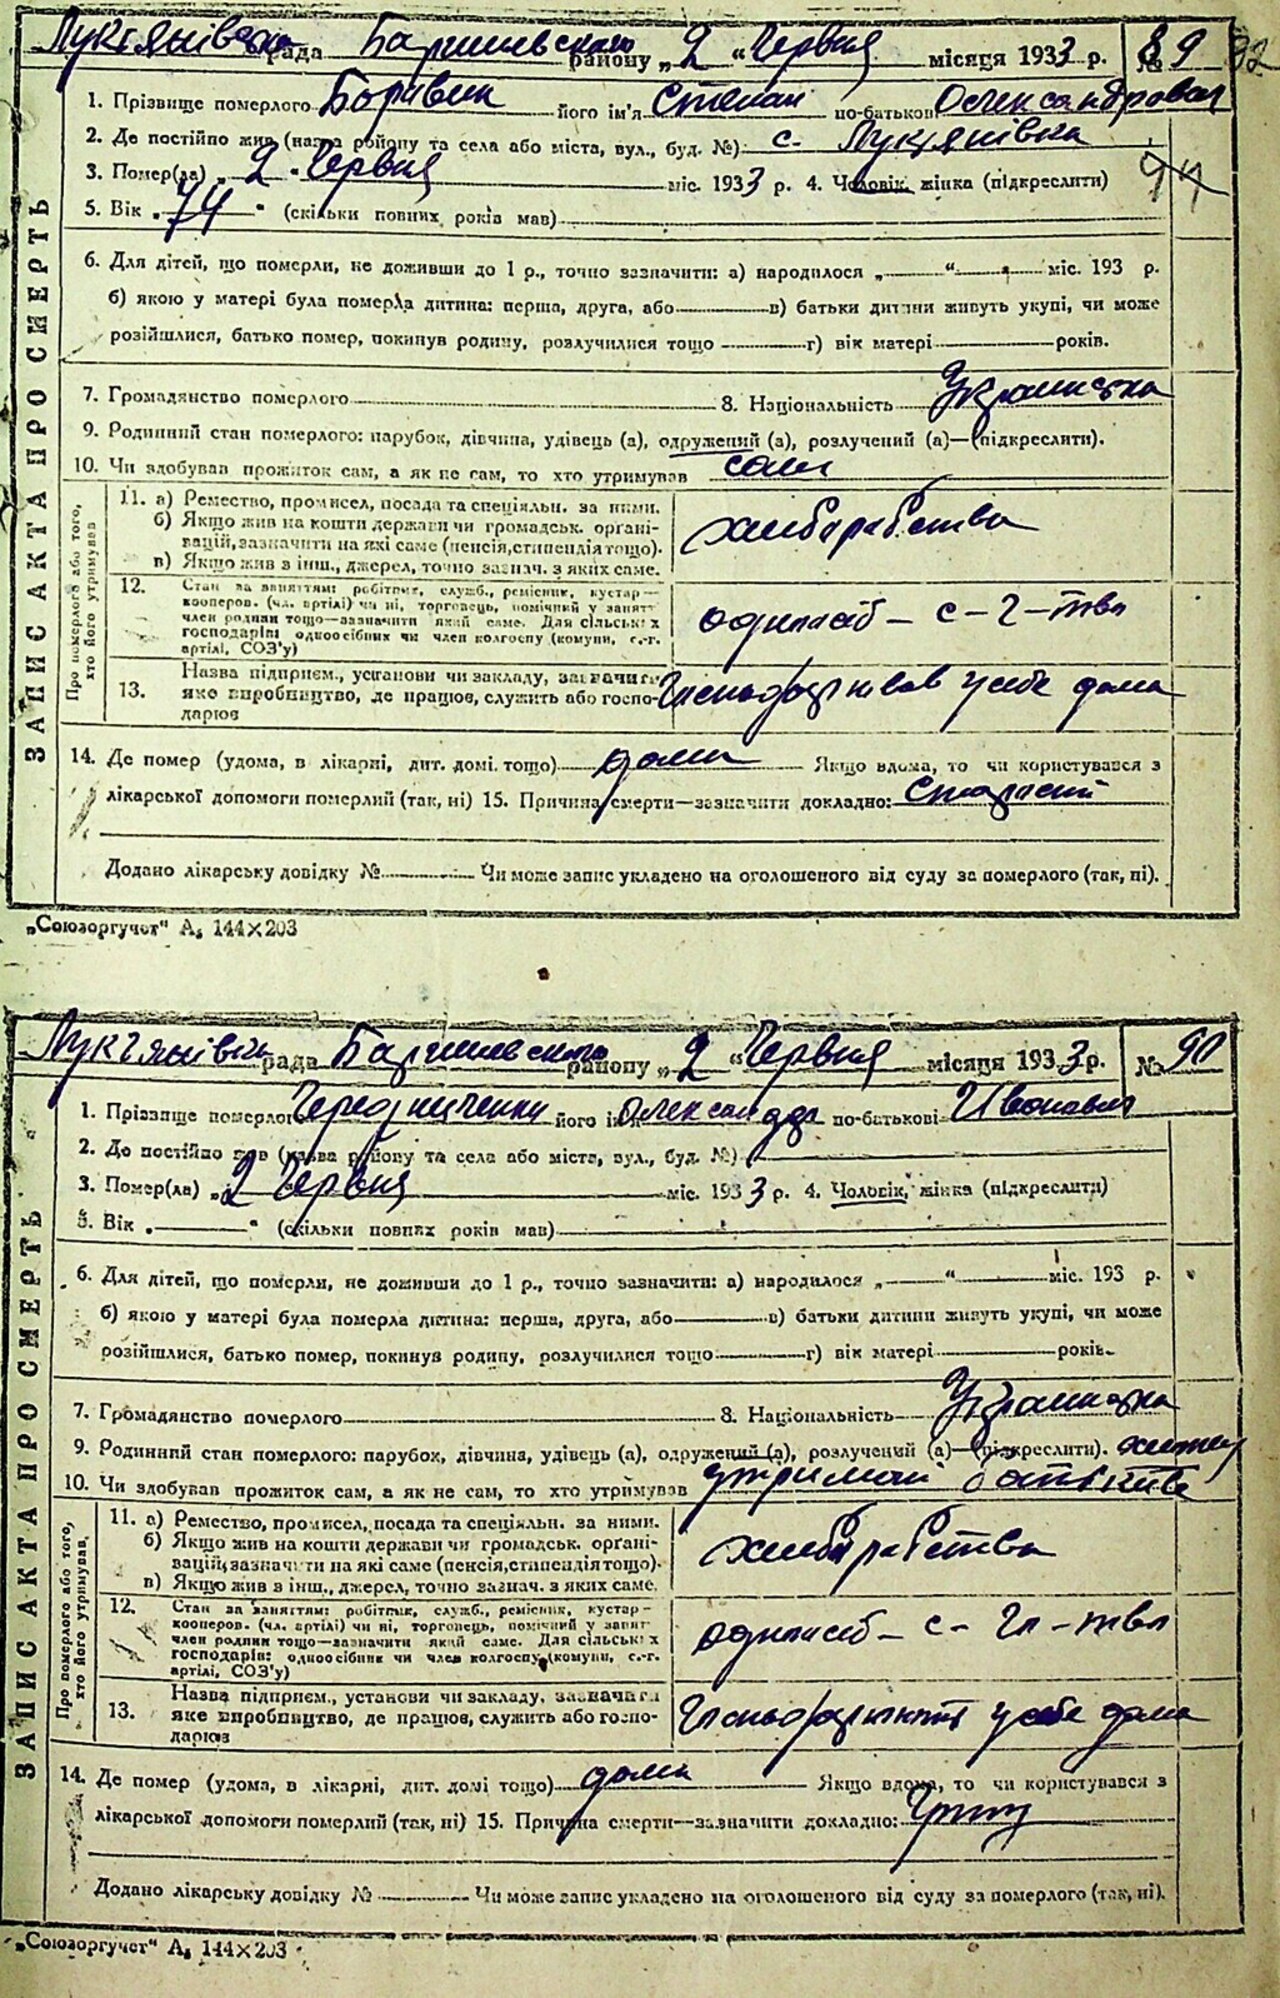 Лукьянівська рада Баришевского району „2 “ Червня місяця 1933 р. № 89
1. Прізвище померлого Боровик його ім'я Степан по-батькові Олександрович
2. Де постійно жив (назва району та села або міста, вул., буд. №) с. Лукянівка
3. Помер(ла) „ 2 “ Червня міс. 1933 р. 4. Чоловік, жінка (підкреслити)
5. Вік „ 74 “ (скільки повних років мав)
6. Для дітей, що померли, не доживши до 1 р., точно зазначити: а) народилося „ “ міс. 193 р.
б) якою у матері була померла дитина: перша, друга, або в) батьки дитини живуть укупі, чи може
розійшлися, батько помер, покинув родину, розлучилися тощо г) вік матері років.
7. Громадянство померлого 8. Національність Украинська
9. Родинний стан померлого: парубок, дівчина, удівець (а), одружений (а), розлучений (а)—(підкреслити).
10. Чи здобував прожиток сам, а як не сам, то хто утримував сам
ЗАПИС АКТА ПРО СМЕРТЬ
Про померлого або того, хто його утримував
11. а) Ремество, промисел, посада та спеціяльн. за ними.
б) Якщо жив на кошти держави чи громадськ. органі-
зацій, зазначити на які саме (пенсія, стипендія тощо).
в) Якщо жив з інш., джерел, точно зазнач. з яких саме.
хлібарабства
12. Стан за заняттям: робітник, служб., ремісник, кустар—
кооперов. (чл. артілі) чи ні, торговець, помічний у занятт
член родини тощо—зазначити який саме. Для сільських
господарів: одноосібник чи член колгоспу (комуни, с.-г.
артілі, СОЗ'у)
13. Назва підприєм., установи чи закладу, зазначити
яке виробництво, де працює, служить або госпо-
дарює
у себе дома
14. Де помер (удома, в лікарні, дит. домі тощо) дома Якщо вдома, то чи користувався з
лікарської допомоги померлий (так, ні) 15. Причина смерти—зазначити докладно: Старість
Додано лікарську довідку № Чи може запис укладено на оголошеного від суду за померлого (так, ні).
„Союзоргучет“ А₅ 144×203
Лукьянівська рада Баришевского району „2 “ Червня місяця 1933 р. № 90
1. Прізвище померлого Чередниченко його ім'я Олександр по-батькові Іванович
2. Де постійно жив (назва району та села або міста, вул., буд. №)
3. Помер(ла) „ 2 Червня міс. 1933 р. 4. Чоловік, жінка (підкреслити)
5. Вік „ “ (скільки повних років мав)
6. Для дітей, що померли, не доживши до 1 р., точно зазначити: а) народилося „ “ міс. 193 р.
б) якою у матері була померла дитина: перша, друга, або в) батьки дитини живуть укупі, чи може
розійшлися, батько помер, покинув родину, розлучилися тощо г) вік матері років.
7. Громадянство померлого 8. Національність Украинська
9. Родинний стан померлого: парубок, дівчина, удівець (а), одружений (а), розлучений (а)—(підкреслити).
10. Чи здобував прожиток сам, а як не сам, то хто утримував
ЗАПИС АКТА ПРО СМЕРТЬ
Про померлого або того, хто його утримував,
11. а) Ремество, промисел, посада та спеціяльн. за ними.
б) Якщо жив на кошти держави чи громадськ. органі-
зацій, зазначити на які саме (пенсія, стипендія тощо).
в) Якщо жив з інш., джерел, точно зазнач. з яких саме.
хлібарабства
12. Стан за заняттям: робітник, служб., ремісник, кустар—
кооперов. (чл. артілі) чи ні, торговець, помічний у занят
член родини тощо—зазначити який саме. Для сільських
господарів: одноосібник чи член колгоспу (комуни, с.-г.
артілі, СОЗ'у)
13. Назва підприєм., установи чи закладу, зазначити
яке виробництво, де працює, служить або госпо-
дарює
у себе дома
14. Де помер (удома, в лікарні, дит. домі тощо) дома Якщо вдома, то чи користувався з
лікарської допомоги померлий (так, ні) 15. Причина смерти—зазначити докладно:
Додано лікарську довідку № Чи може запис укладено на оголошеного від суду за померлого (так, ні).
„Союзоргучет“ А₅ 144×203